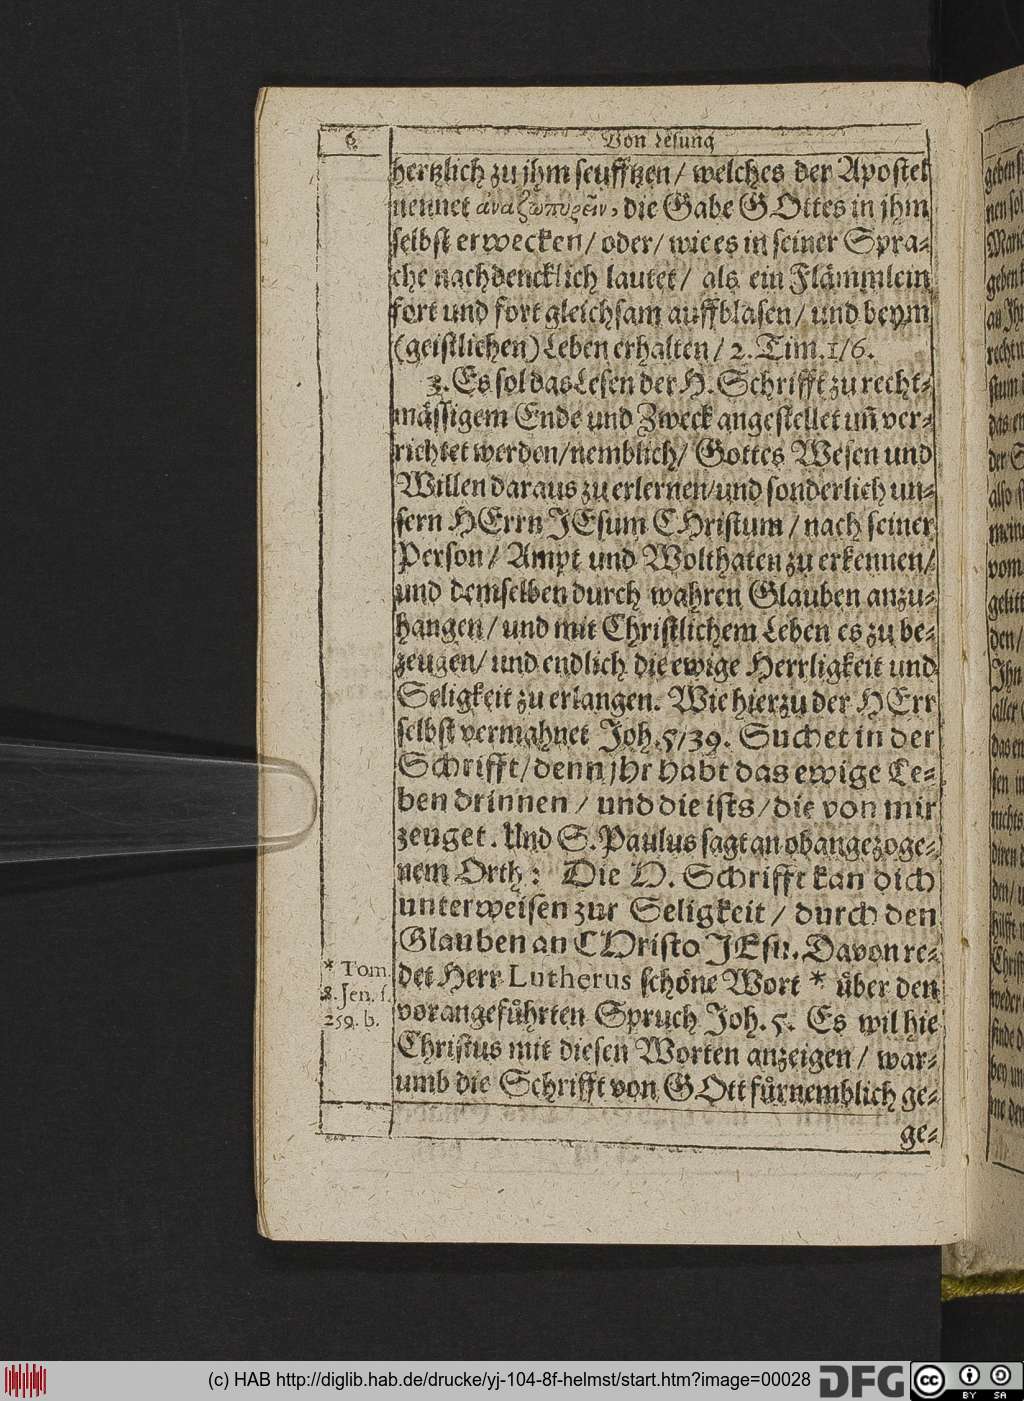 6. Von Lesung
hertzlich zu jhm seufftzen / welches der Apostel
nennet ἀναζωπυρεῖν, die Gabe GOttes in jhm
selbst erwecken / oder / wie es in seiner Spra-
che nachdencklich lautet / als ein Flämmlein
fort und fort gleichsam auffblasen / und beym
(geistlichen) Leben erhalten / 2. Tim. 1/6.
3. Es sol das Lesen der H. Schrifft zu recht-
mässigem Ende und Zweck angestellet uñ ver-
richtet werden / nemblich / Gottes Wesen und
Willen daraus zu erlernen / und sonderlich un-
sern HErrn JEsum CHristum / nach seiner
Person / Ampt und Wolthaten zu erkennen /
und demselben durch wahren Glauben anzu-
hangen / und mit Christlichem Leben es zu be-
zeugen / und endlich die ewige Herrligkeit und
Seligkeit zu erlangen. Wie hierzu der HErr
selbst vermahnet Joh. 5/39. Suchet in der
Schrifft / denn jhr habt das ewige Le-
ben drinnen / und die ists / die von mir
zeuget. Und S. Paulus sagt an obangezoge-
nem Orth: Die H. Schrifft kan dich
unterweisen zur Seligkeit / durch den
Glauben an CHristo JEsu. Davon re-
det Herr Lutherus schöne Wort * über den
vorangeführten Spruch Joh. 5. Es wil hie
Christus mit diesen Worten anzeigen / war-
umb die Schrifft von GOtt fürnemblich ge-
ge-
* Tom.
8. Jen. f.
259. b.
(c) HAB http://diglib.hab.de/drucke/yj-104-8f-helmst/start.htm?image=00028
DFG
cc BY SA